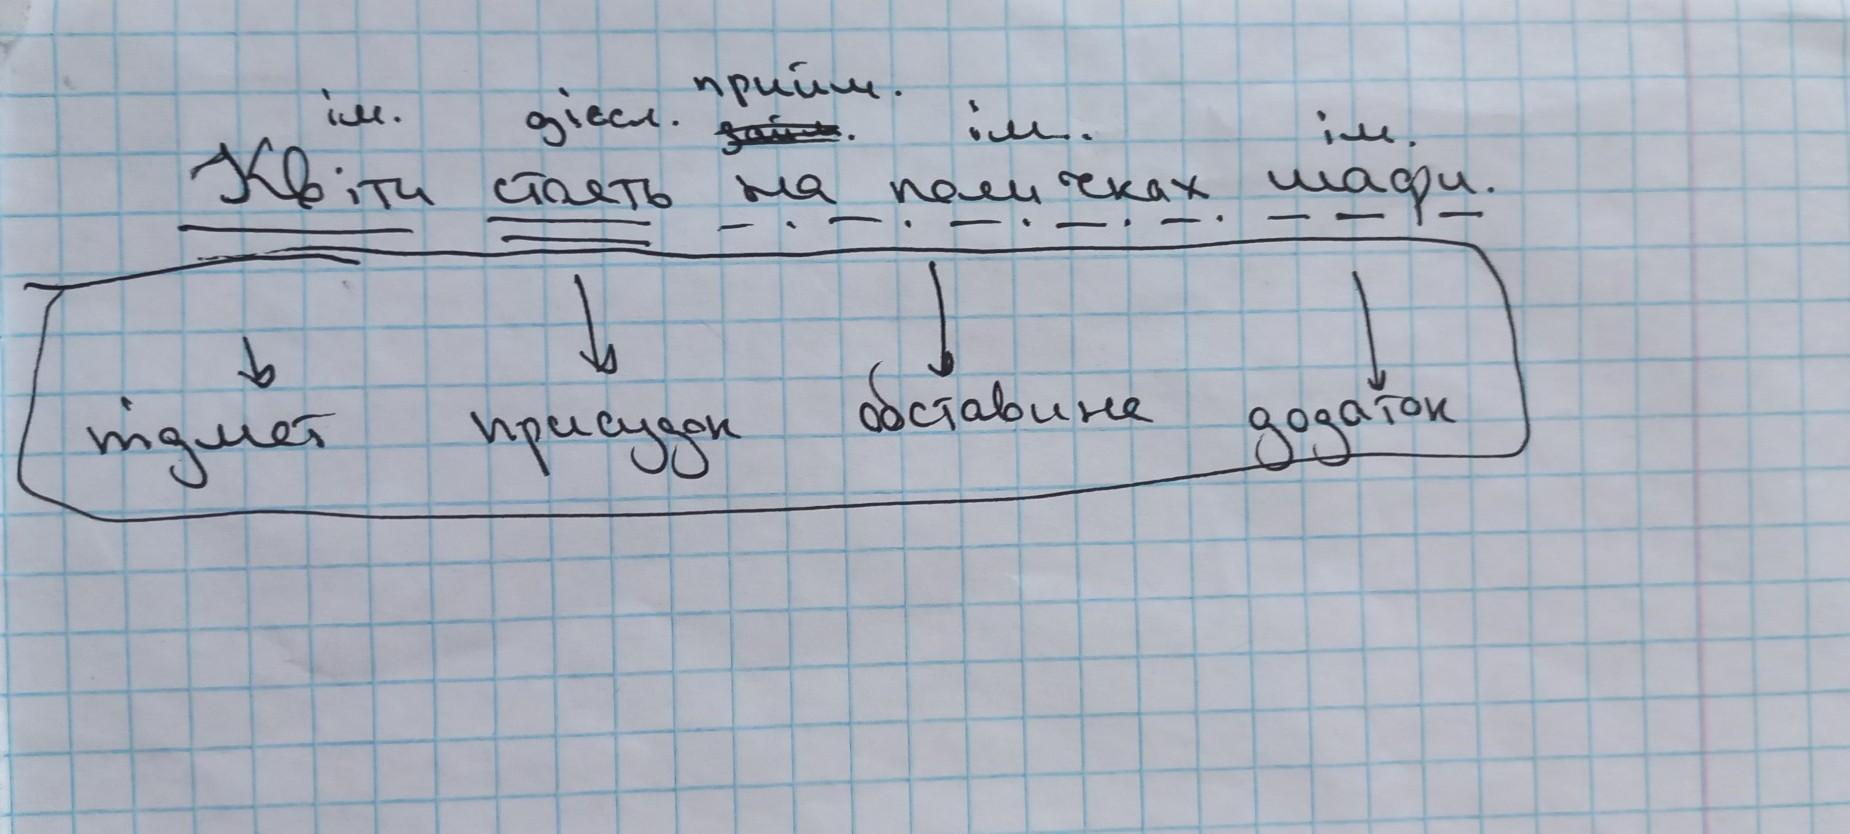 ім. дієсл. прийм. ім. ім.
Квіти стоять на поличках шафи.
підмет присудок обставина додаток